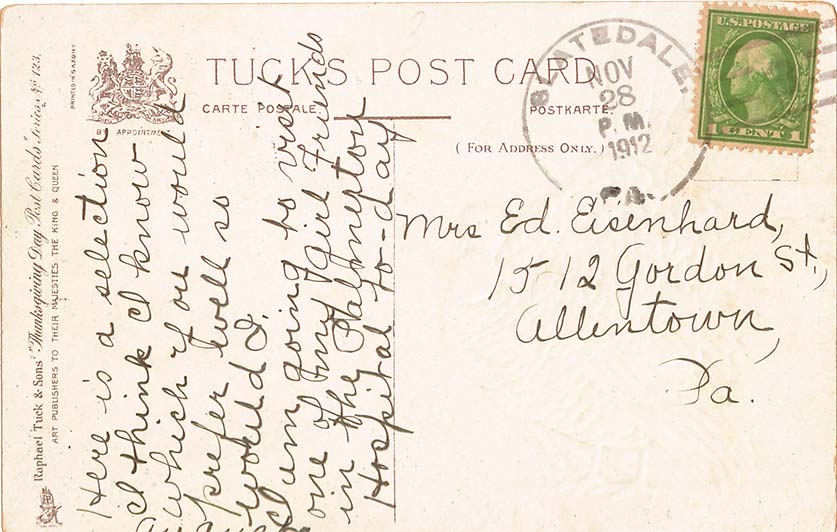 Raphael Tuck & Sons' "Thanksgiving Day" Post Cards Series No 123.
ART PUBLISHERS TO THEIR MAJESTIES THE KING & QUEEN
PRINTED IN SAXONY
BY APPOINTMENT
TUCK'S POST CARD
CARTE POSTALE.
POSTKARTE.
(FOR ADDRESS ONLY.)
SLATEDALE,
NOV
28
P.M.
1912
PA.
U.S. POSTAGE
1 CENT 1
Here is a selection
I think I know
which you would
prefer well so
would I.
I am going to visit
one of my girl Friends
in the Palmerton
Hospital to-day
Mrs Ed. Eisenhard,
1512 Gordon St,
Allentown,
Pa.